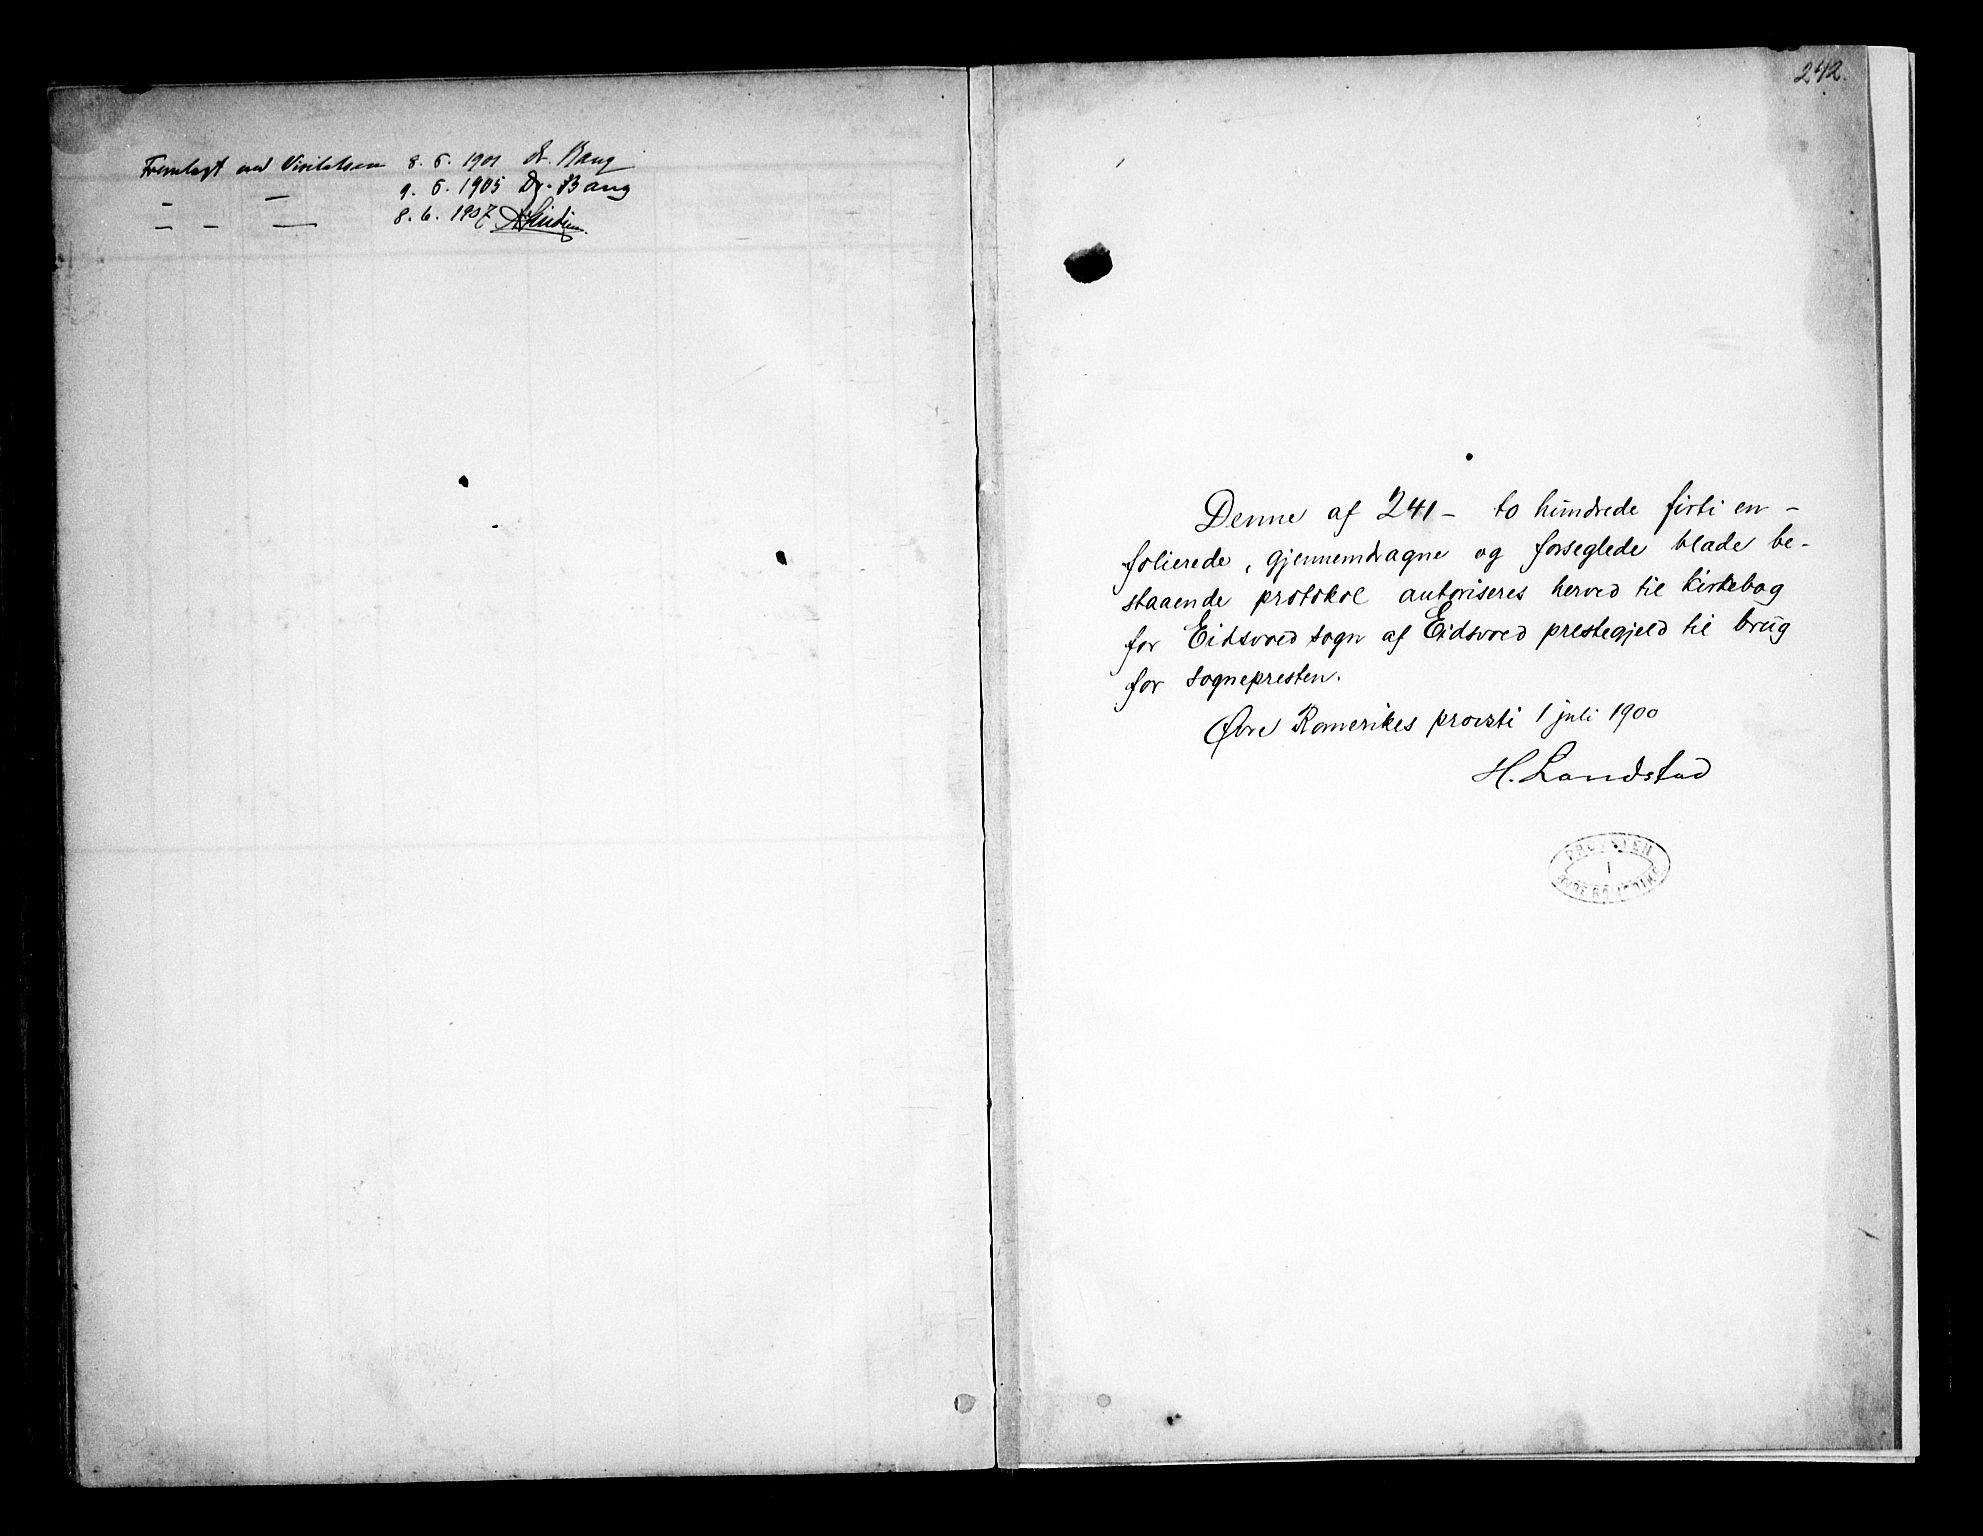 Fremlagt ved Visitatsen 8. 6. 1901 Dr. Bang
— — 9. 6. 1905 Dr. Bang
— — — 8. 6. 1907
242.
Denne af 241 – to hundrede firti en –
folierede, gjennemdragne og forseglede blade be-
staaende protokol autoriseres herved til kirkebog
for Eidsvold sogn af Eidsvold prestegjeld til brug
for sognepresten.
Øvre Romerikes provsti 1 juli 1900
H. Landstad
PROVSTEN
I
ØVRE ROMERIKE